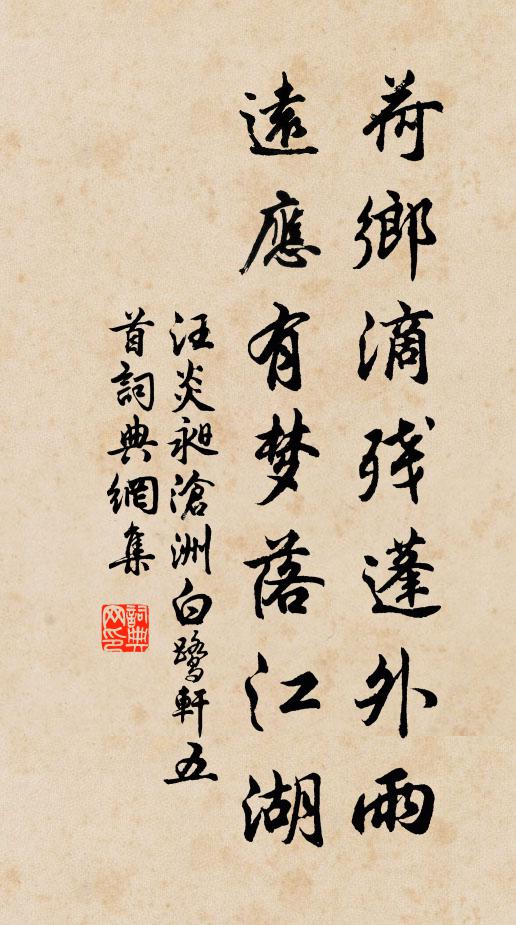 荷鄉滴残蓬外雨
遠應有梦落江湖
汪炎昶滄洲白鷺軒五
首詞典網集
詞典网印